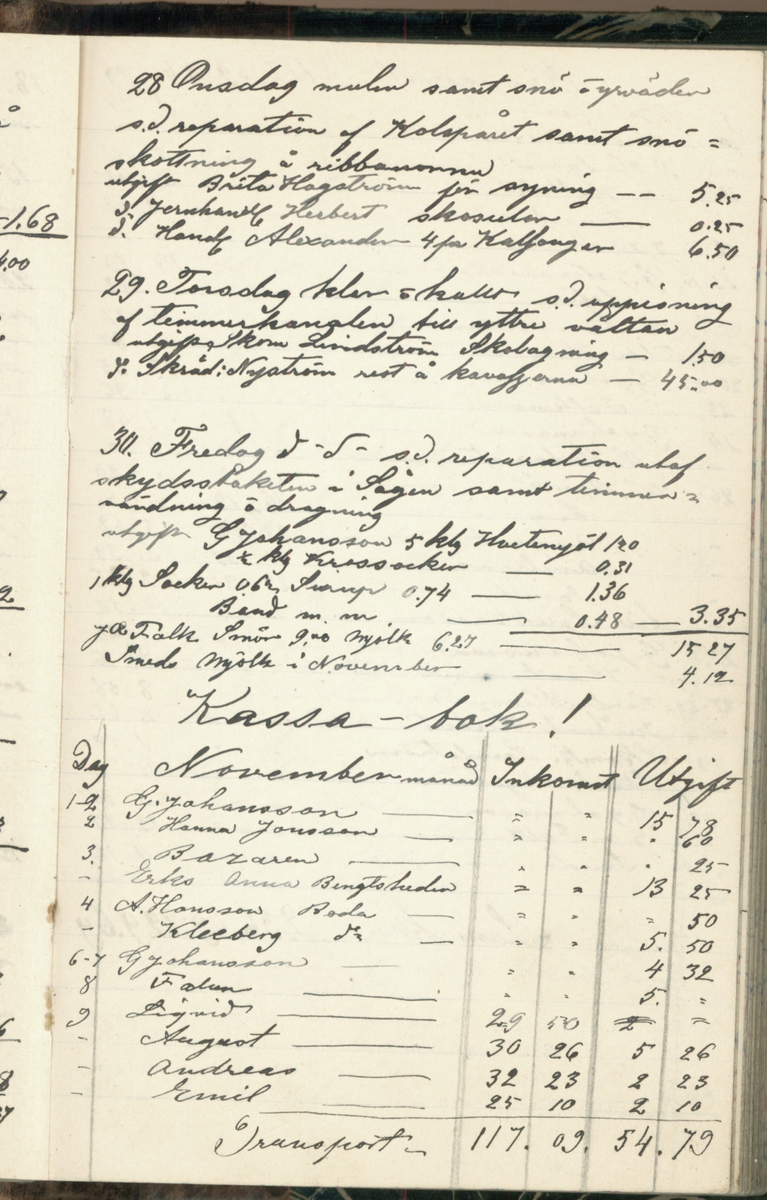 28 Onsdag mulen samt snö ö yrväder
s.d. reparation af Kolspåret samt snö=
skottning å ribbanorna
utgift Brita Hagström för syning — 5.25
d. Jernhandl Herbert skosulor — 0.25
d. Handl Alexander 4 pr Kalsonger 6.50
29. Torsdag klar ö kallt s.d. uppisning
af timmerkanalen till yttre vältan
utgift Skom Lindström Skolagning — 1.50
d. Skräd: Nyström rest å kavajerna — 45.00
30. Fredag d - d - s.d. reparation utaf
skyddsstaketen i Sågen samt timmer=
vändning ö dragning
utgift G Johansson 5 klg Hvetemjöl 1.20
½ klg Krossocker — 0.31
1 klg Socker 0.62 Sirup 0.74 — 1.36
Band m. m — 0.48 — 3.35
Falk Smör 9.00 Mjölk 6.27 — 15 27
Smeds Mjölk i November — 4.12
Kassa - bok!
Dag November månad Inkomst Utgift
1-2 G. Johansson — " " 15 78
2 Hanna Jonsson — " " " 60
3. Bazaren — " " " 25
- Erks Anna Bengtsheden " " 13 25
4 A. Hansson Boda — " " " 50
- Kleeberg do — " " 5. 50
6-7 G Johansson — " " 4 32
8 Falun — " " 5. "
9 Sigvid — 29 50 2 "
- August — 30 26 5 26
- Andreas — 32 23 2 23
- Emil — 25 10 2 10
Transport - 117. 09. 54. 79
-1.68